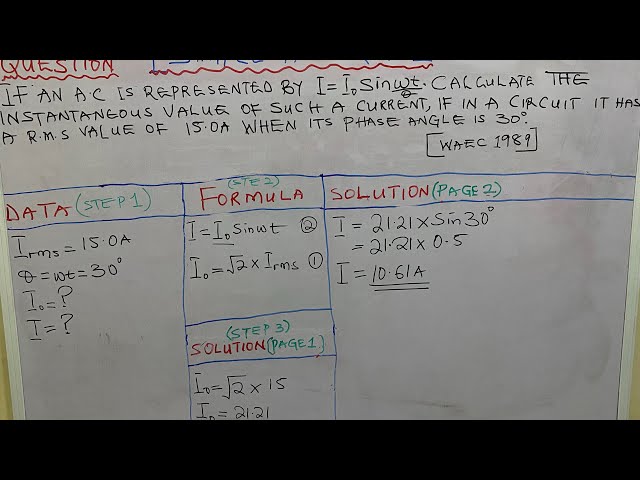 QUESTION
IF AN A.C IS REPRESENTED BY I=I₀ Sinωt. CALCULATE THE
θ
INSTANTANEOUS VALUE OF SUCH A CURRENT, IF IN A CIRCUIT IT HAS
A R.M.S VALUE OF 15.0A WHEN ITS PHASE ANGLE IS 30°.
[WAEC 1989]
DATA (STEP 1)
Irms = 15.0A
θ = ωt = 30°
I₀ = ?
I = ?
(STEP 2)
FORMULA
I = I₀ Sinωt ②
I₀ = √2 × Irms ①
(STEP 3)
SOLUTION (PAGE 1)
I₀ = √2 × 15
I₀ = 21.21
SOLUTION (PAGE 2)
I = 21.21 × Sin30°
= 21.21 × 0.5
I = 10.61A